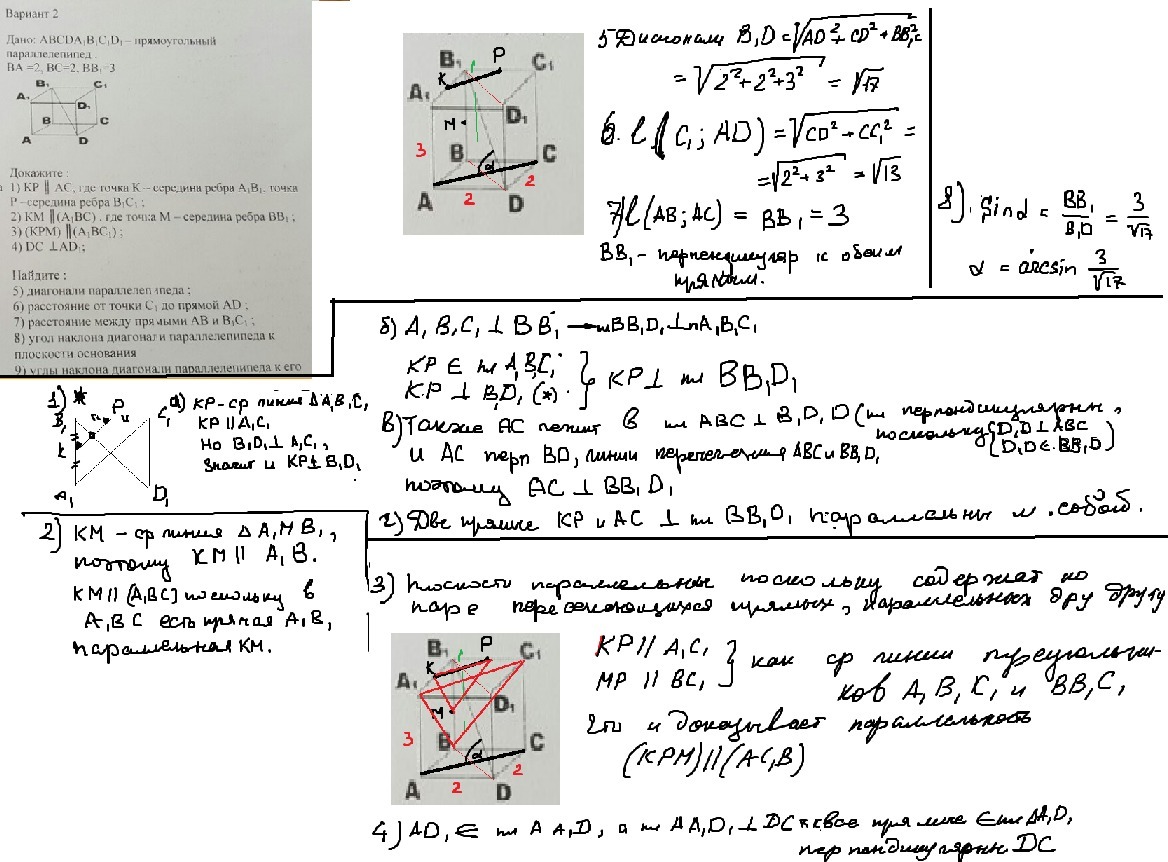 Вариант 2
Дано: ABCDA₁B₁C₁D₁ – прямоугольный
параллелепипед
BA =2, BC=2, BB₁=3
B₁ C₁
A₁ D₁
B C
A D
Докажите :
1) KP ∥ AC, где точка K – середина ребра A₁B₁, точка
P –середина ребра B₁C₁ ;
2) KM ∥(A₁BC) , где точка M – середина ребра BB₁ ;
3) (KPM) ∥(A₁BC₁) ;
4) DC ⊥AD₁;
Найдите :
5) диагонали параллелепипеда ;
6) расстояние от точки C₁ до прямой AD ;
7) расстояние между прямыми AB и B₁C₁ ;
8) угол наклона диагонали параллелепипеда к
плоскости основания
9) углы наклона диагонали параллелепипеда к его
B₁ P C₁
K
A₁ D₁
M
3 B α C
A 2 D 2
5 Диагонали B₁D = √AD²+CD²+BB₁²
= √2²+2²+3² = √17
6. l(C₁; AD) = √CD²+CC₁² =
= √2²+3² = √13
7) l(AB; AC) = BB₁ = 3
BB₁ - перпендикуляр к обеим
прямым.
8). Sin α = BB₁/B₁D = 3/√17
α = arcsin 3/√17
1) *
B₁ P C₁
K
A₁ D₁
а) KP - ср линия ΔA₁B₁C₁
KP ∥ A₁C₁
Но B₁D₁ ⊥ A₁C₁,
значит и KP ⊥ B₁D₁
б) A₁B₁C₁ ⊥ BB₁ → плBB₁D₁ ⊥ плA₁B₁C₁
KP ∈ пл A₁B₁C₁
KP ⊥ B₁D₁ (*) } KP ⊥ пл BB₁D₁
в) Также AC лежит в пл ABC ⊥ B₁D₁D (пл перпендикулярны,
поскольку {D₁D ⊥ ABC
D₁D ∈ BB₁D)
и AC перп BD, линии пересечения ABC и BB₁D₁
поэтому AC ⊥ BB₁D₁
г) Две прямые KP и AC ⊥ пл BB₁D₁ параллельны м. собой.
2) KM - ср линия ΔA₁MB₁,
поэтому KM ∥ A₁B.
KM ∥ (A₁BC) поскольку в
A₁BC есть прямая A₁B,
параллельная KM.
3) Плоскости параллельны поскольку содержат по
паре пересекающихся прямых, параллельных дру другу
B₁ P C₁
K
A₁ D₁
M
3 B α C
A 2 D 2
KP ∥ A₁C₁
MP ∥ BC₁ } как ср линии треугольни-
ков A₁B₁C₁ и BB₁C₁
Что и доказывает параллельность
(KPM) ∥ (AC₁B)
4) AD₁ ∈ пл AA₁D₁ а пл AA₁D₁ ⊥ DC все прямые ∈ пл AA₁D₁
перпендикулярны DC